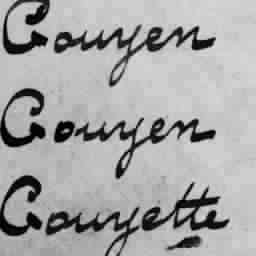 Gouyen
Gouyen
Gouyette